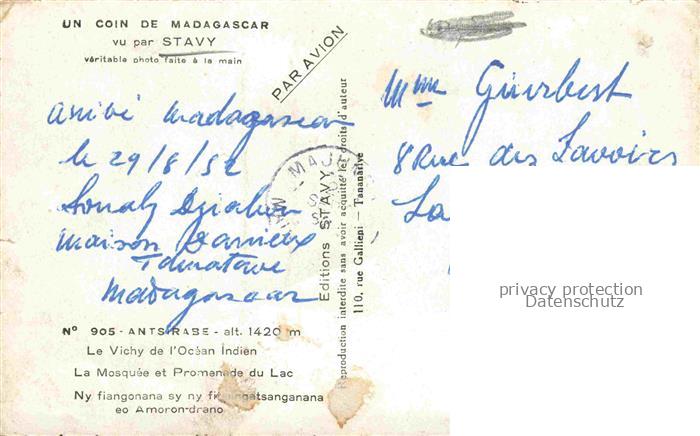 UN COIN DE MADAGASCAR
vu par STAVY
véritable photo faite à la main
PAR AVION
arrivé Madagascar
le 29/8/52
Maison
Tamatave
Madagascar
N° 905 - ANTSIRABE - alt. 1420 m
Le Vichy de l'Océan Indien
La Mosquée et Promenade du Lac
Ny fiangonana sy ny
eo Amoron-drano
MAJ
Editions STAVY
Reproduction interdite sans avoir acquitté les droits d'auteur
110, rue Gallieni — Tananarive
Mme
8 Rue des Lavoirs
La
privacy protection
Datenschutz